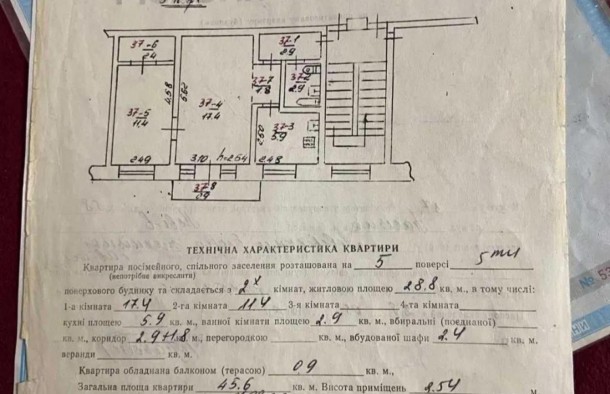 37-6
2.4
37-1
2.9
37-2
2.9
37-7
1.8
37-5
11.4
4.58
5.60
37-4
17.4
37-3
5.9
2.60
2.49
3.10
h=2.54
2.48
37-8
0.9
ТЕХНІЧНА ХАРАКТЕРИСТИКА КВАРТИРИ
Квартира посімейного, спільного заселення розташована на 5 поверсі 5ти
(непотрібне викреслити)
поверхового будинку та складається з 2х кімнат, житловою площею 28.8 кв. м., в тому числі:
1-а кімната 17.4 2-га кімната 11.4 3-я кімната 4-та кімната
кухні площею 5.9 кв. м., ванної кімнати площею 2.9 кв. м., вбиральні (поєднаної)
кв. м., коридор 2.9+1.8 м., перегородкою кв. м., вбудованої шафи 2.4 кв. м.
веранди кв. м.
Квартира обладнана балконом (терасою) 0.9 кв. м.,
Загальна площа квартири 45.6 кв. м. Висота приміщень 2.54 м
№ 53